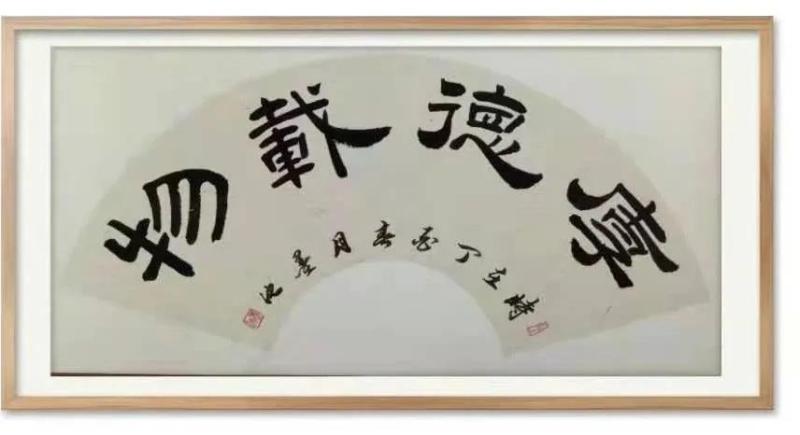 厚德載物
時在丁酉春月